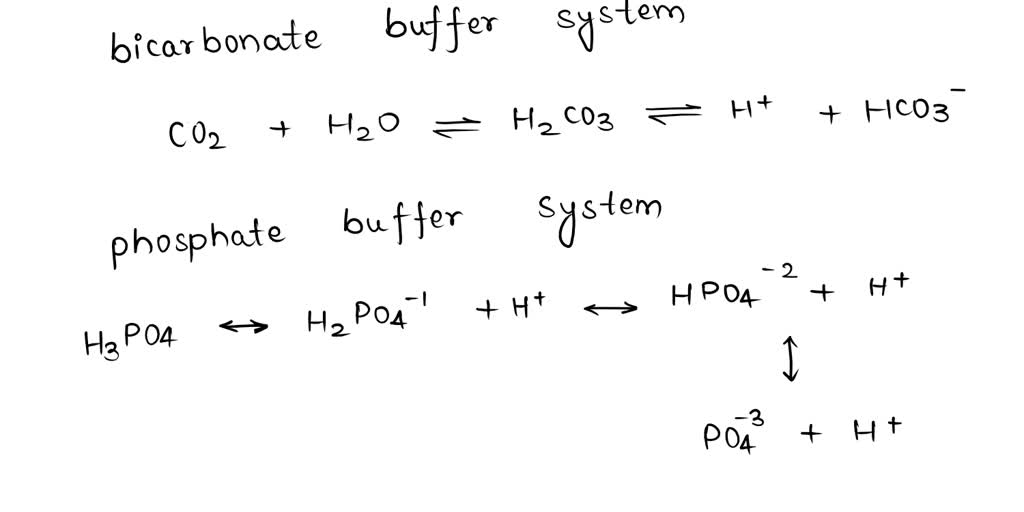 bicarbonate buffer system
CO₂ + H₂O ⇌ H₂CO₃ ⇌ H⁺ + HCO₃⁻
phosphate buffer system
H₃PO₄ ↔ H₂PO₄⁻¹ + H⁺ ↔ HPO₄⁻² + H⁺
↕
PO₄⁻³ + H⁺